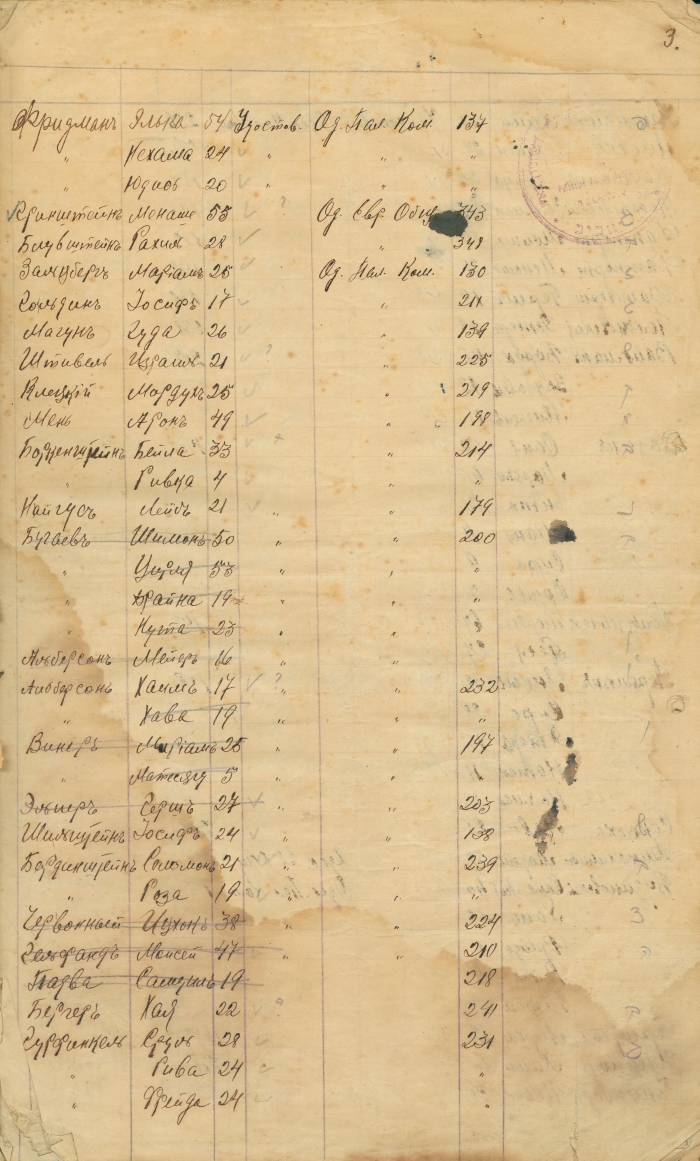 3.
Фридманъ Элька 54 Удостов. Од. Пал. Ком. 134
" Нехама 24 " " "
" Юдись 20 " " "
Кринштейнъ Монаше 55 ? Од. Евр. Общ. 343
Рахиль 28 " 348
Залцбергъ Маріамъ 25 Од. Пал. Ком. 130
Гольдинъ Іосифъ 17 " 211
Магунъ Гуда 26 " 139
Штивель 21 ? " 225
Клецкій Мордухъ 25 " 219
Мень Аронъ 49 " 198
Бейла 33 " 214
" Ривка 4 " "
Найгусъ Лейбъ 21 " " 179
Бугаевъ Шимонъ 50 " " 200
" Циля 53 " " "
" Брайна 19 " " "
" Кута 23 " " "
Альберсонъ Мейеръ 16 " "
Альберсонъ Хаимъ 17 ? " 232
" Хава 19 " " "
Винеръ Маріамъ 25 " " 197
" 5 " " "
Гершъ 27 " " 203
Іосифъ 24 " " 138
Бординштейнъ Соломонъ 21 " " 239
" Роза 19 " " "
Червонный Ицхокъ 38 224
Гельфандъ Моисей 47 " " 210
Падва Самуилъ 19 218
Бергеръ Хая 22 ? 241
Гурфинкель Сруль 28 231
" Рива 24 "
" Фрейда 24 "